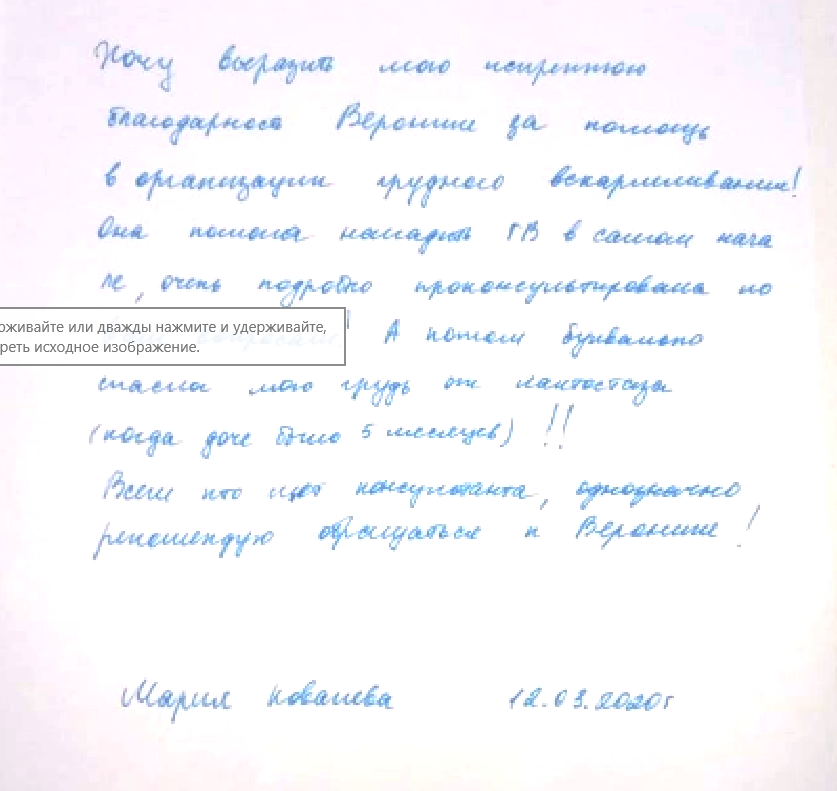 Хочу выразить мою искреннюю
благодарность Веронике за помощь
в организации грудного вскармливания!
Она помогла наладить ГВ в самом нача
ле, очень подробно проконсультировала по
оживайте или дважды нажмите и удерживайте,
реть исходное изображение.
! А потом буквально
спасла мою грудь от лактостаза
(когда доче было 5 месяцев) !!
Всем кто ищет консультанта, однозначно
рекомендую обращаться к Веронике!
Мария Ковалева 12.03.2020г